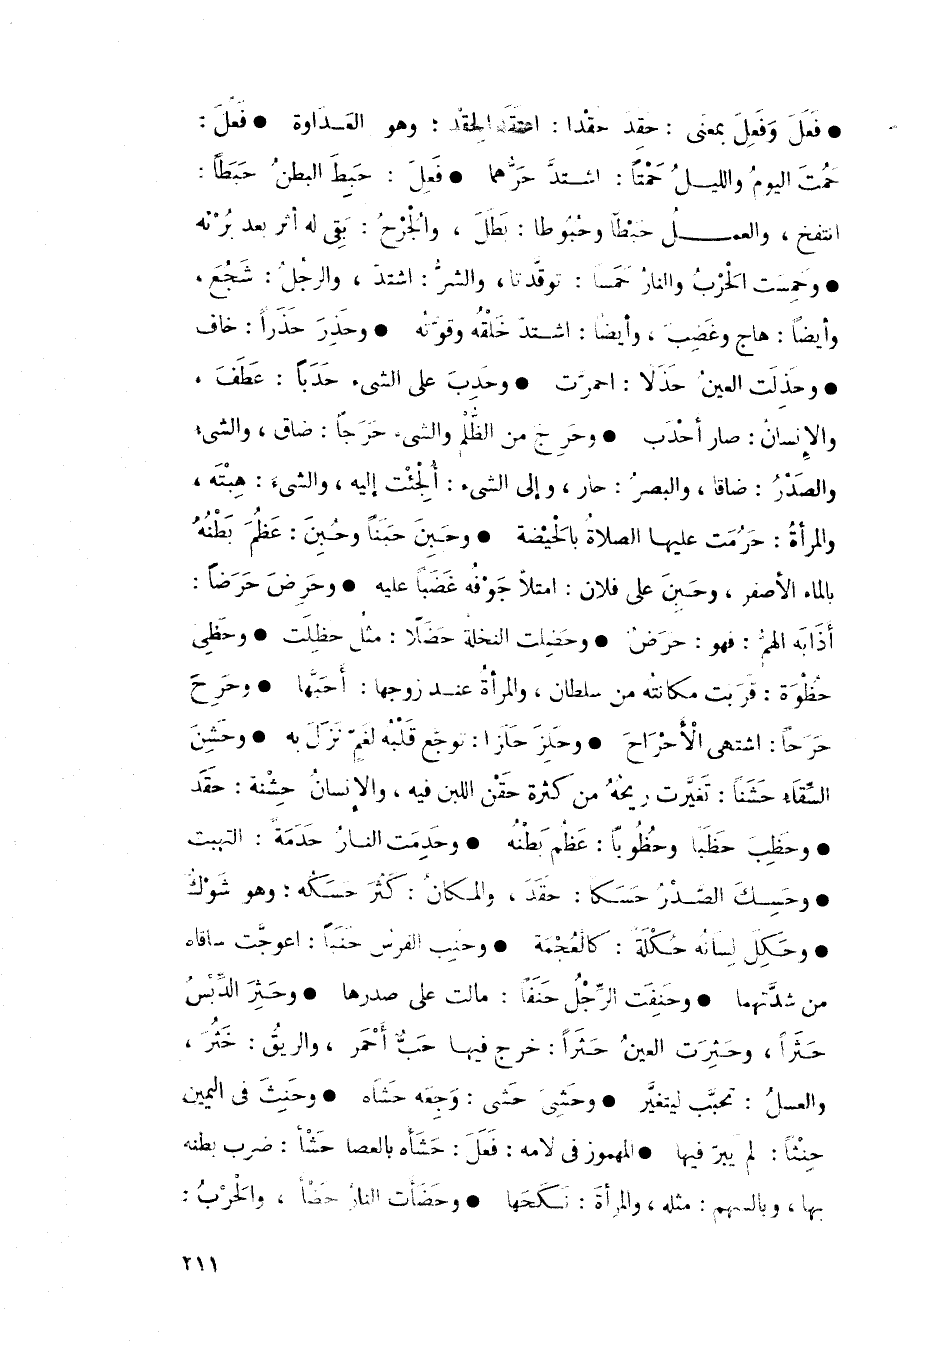 ● فَعَلَ وَفَعِلَ بمعنى : حقِدَ حقْدا : اعتقَد الحِقْد ؛ وهو العَداوة ● فَعُلَ :
حَمُتَ اليومُ والليلُ حَمْتاً : اشتدَّ حَرُّهما ● فَعِلَ : حَبِطَ البطنُ حَبَطاً :
انتفخ ، والعملُ حَبْطاً وحُبُوطا : بَطَلَ ، والْجُرْحُ : بَقِى له أثر بعد بُرْئه
● وحَمِسَت الْحَرْبُ والنارُ حَمَساً : توقَّدتا ، والشرُّ : اشتدّ ، والرجُلُ : شَجُعَ ،
وأيضاً : هاج وغَضِبَ ، وأيضاً : اشتدّ خَلْقُه وقوّتُه ● وحَذِرَ حَذَراً : خاف
● وحَذِلَت العينُ حَذَلًا : احمرَّت ● وحَدِبَ على الشىء حَدَباً : عَطَفَ ،
والإنسانُ : صار أحْدَب ● وحَرِجَ من الظُّلْمِ والشىء حَرَجاً : ضاق ، والشىءُ
والصَدْرُ : ضاقا ، والبصرُ : حار ، وإلى الشىء : أُلْجِئْت إليه ، والشىءَ : هِبْتَه ،
والمرأةُ : حَرُمَت عليها الصلاةُ بالْحَيْضة ● وحَبِنَ حَبَنًا وحُبِنَ : عَظُمَ بَطْنُهُ
بالماء الأصفر ، وحَبِنَ على فلان : امتلأ جَوْفُه غَضَباً عليه ● وحَرِضَ حَرَضاً :
أذَابَه الهمُّ : فهو : حرَضٌ ● وحَضِلت النخلةُ حَضَلًا : مثلُ حظِلَت ● وحَظِىَ
حُظْوَة : قَرَبت مكانتُه من سلطان ، والمرأةُ عند زوجها : أَحَبَّها ● وحَرِحَ
حَرَحاً : اشتهى الْأَحْرَاحَ ● وحلِزَ حَلَزا : توجّع قَلْبُه لغَمّ نَزَلَ به ● وحَشِنَ
السِّقاء حَشَناً : تَغيَّرت ريحُهُ من كثرة حقْن اللبن فيه ، والإنسانُ حِشْنة : حقَد
● وحظِبَ حظَبًا وحُظُوباً : عَظُم بَطْنُه ● وحَدِمَت النارُ حَدَمَةً : التهبت
● وحَسِكَ الصّدْرُ حَسَكا : حقَدَ ، والمكانُ : كَثُرَ حَسَكُه : وهو شَوْكٌ
● وحَكِلَ لِسَانُه حُكْلَةً : كالعُجْمَة ● وحنِب الفرسُ حنَباً : اعوجَّت ساقاه
من شدَّتهما ● وحَنِفَت الرِّجْلُ حَنَفًا : مالت على صدرها ● وحَثِرَ الدِّبْسُ
حَثَراً ، وحَثِرَت العينُ حَثَراً : خرج فيها حَبٌّ أَحْمَر ، والريقُ : خَثُرَ ،
والعسلُ : تحبَّب ليتغيَّر ● وحَشِىَ حَشًى : وَجِعَه حَشَاه ● وحَنِثَ فى اليمين
حِنْثاً : لم يبرّ فيها ● المهموز فى لامه : فَعَلَ : حَشَأه بالعصا حَشْأً : ضرب بطنه
بها ، وبالسهم : مثله ، والمرأةَ : نَكَحَها ● وحَضَأت النارُ حَضْأً ، والْحَرْبُ :
٢١١